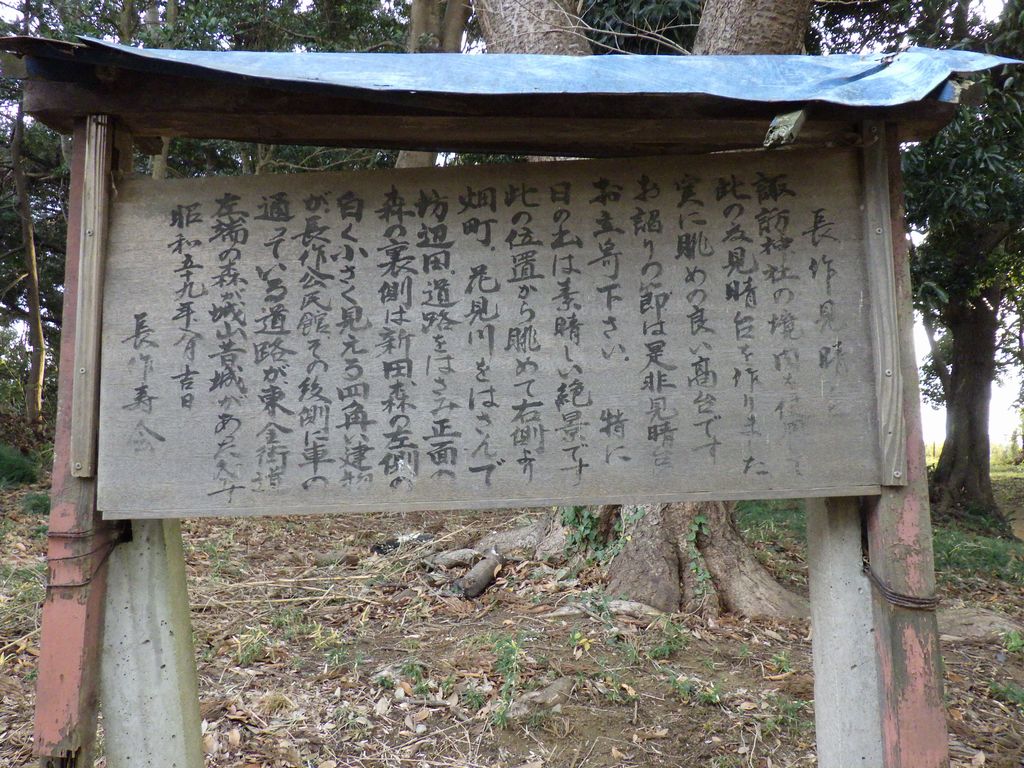 長作見晴
諏訪神社の境内を使用して
此の度見晴台を作りました
実に眺めの良い高台です
お詣りの節は是非見晴台
お立寄下さい。特に
日の出は素晴しい絶景です
此の位置から眺めて右側より
畑町、花見川をはさんで
坊辺田、道路をはさみ正面の
森の裏側は新田、森の左側の
白く小さく見える四角い建物
が長作公民館その後側に車の
通っている道路が東金街道
左端の森が城山昔城があった所です
昭和五十九年八月吉日
長作寿会